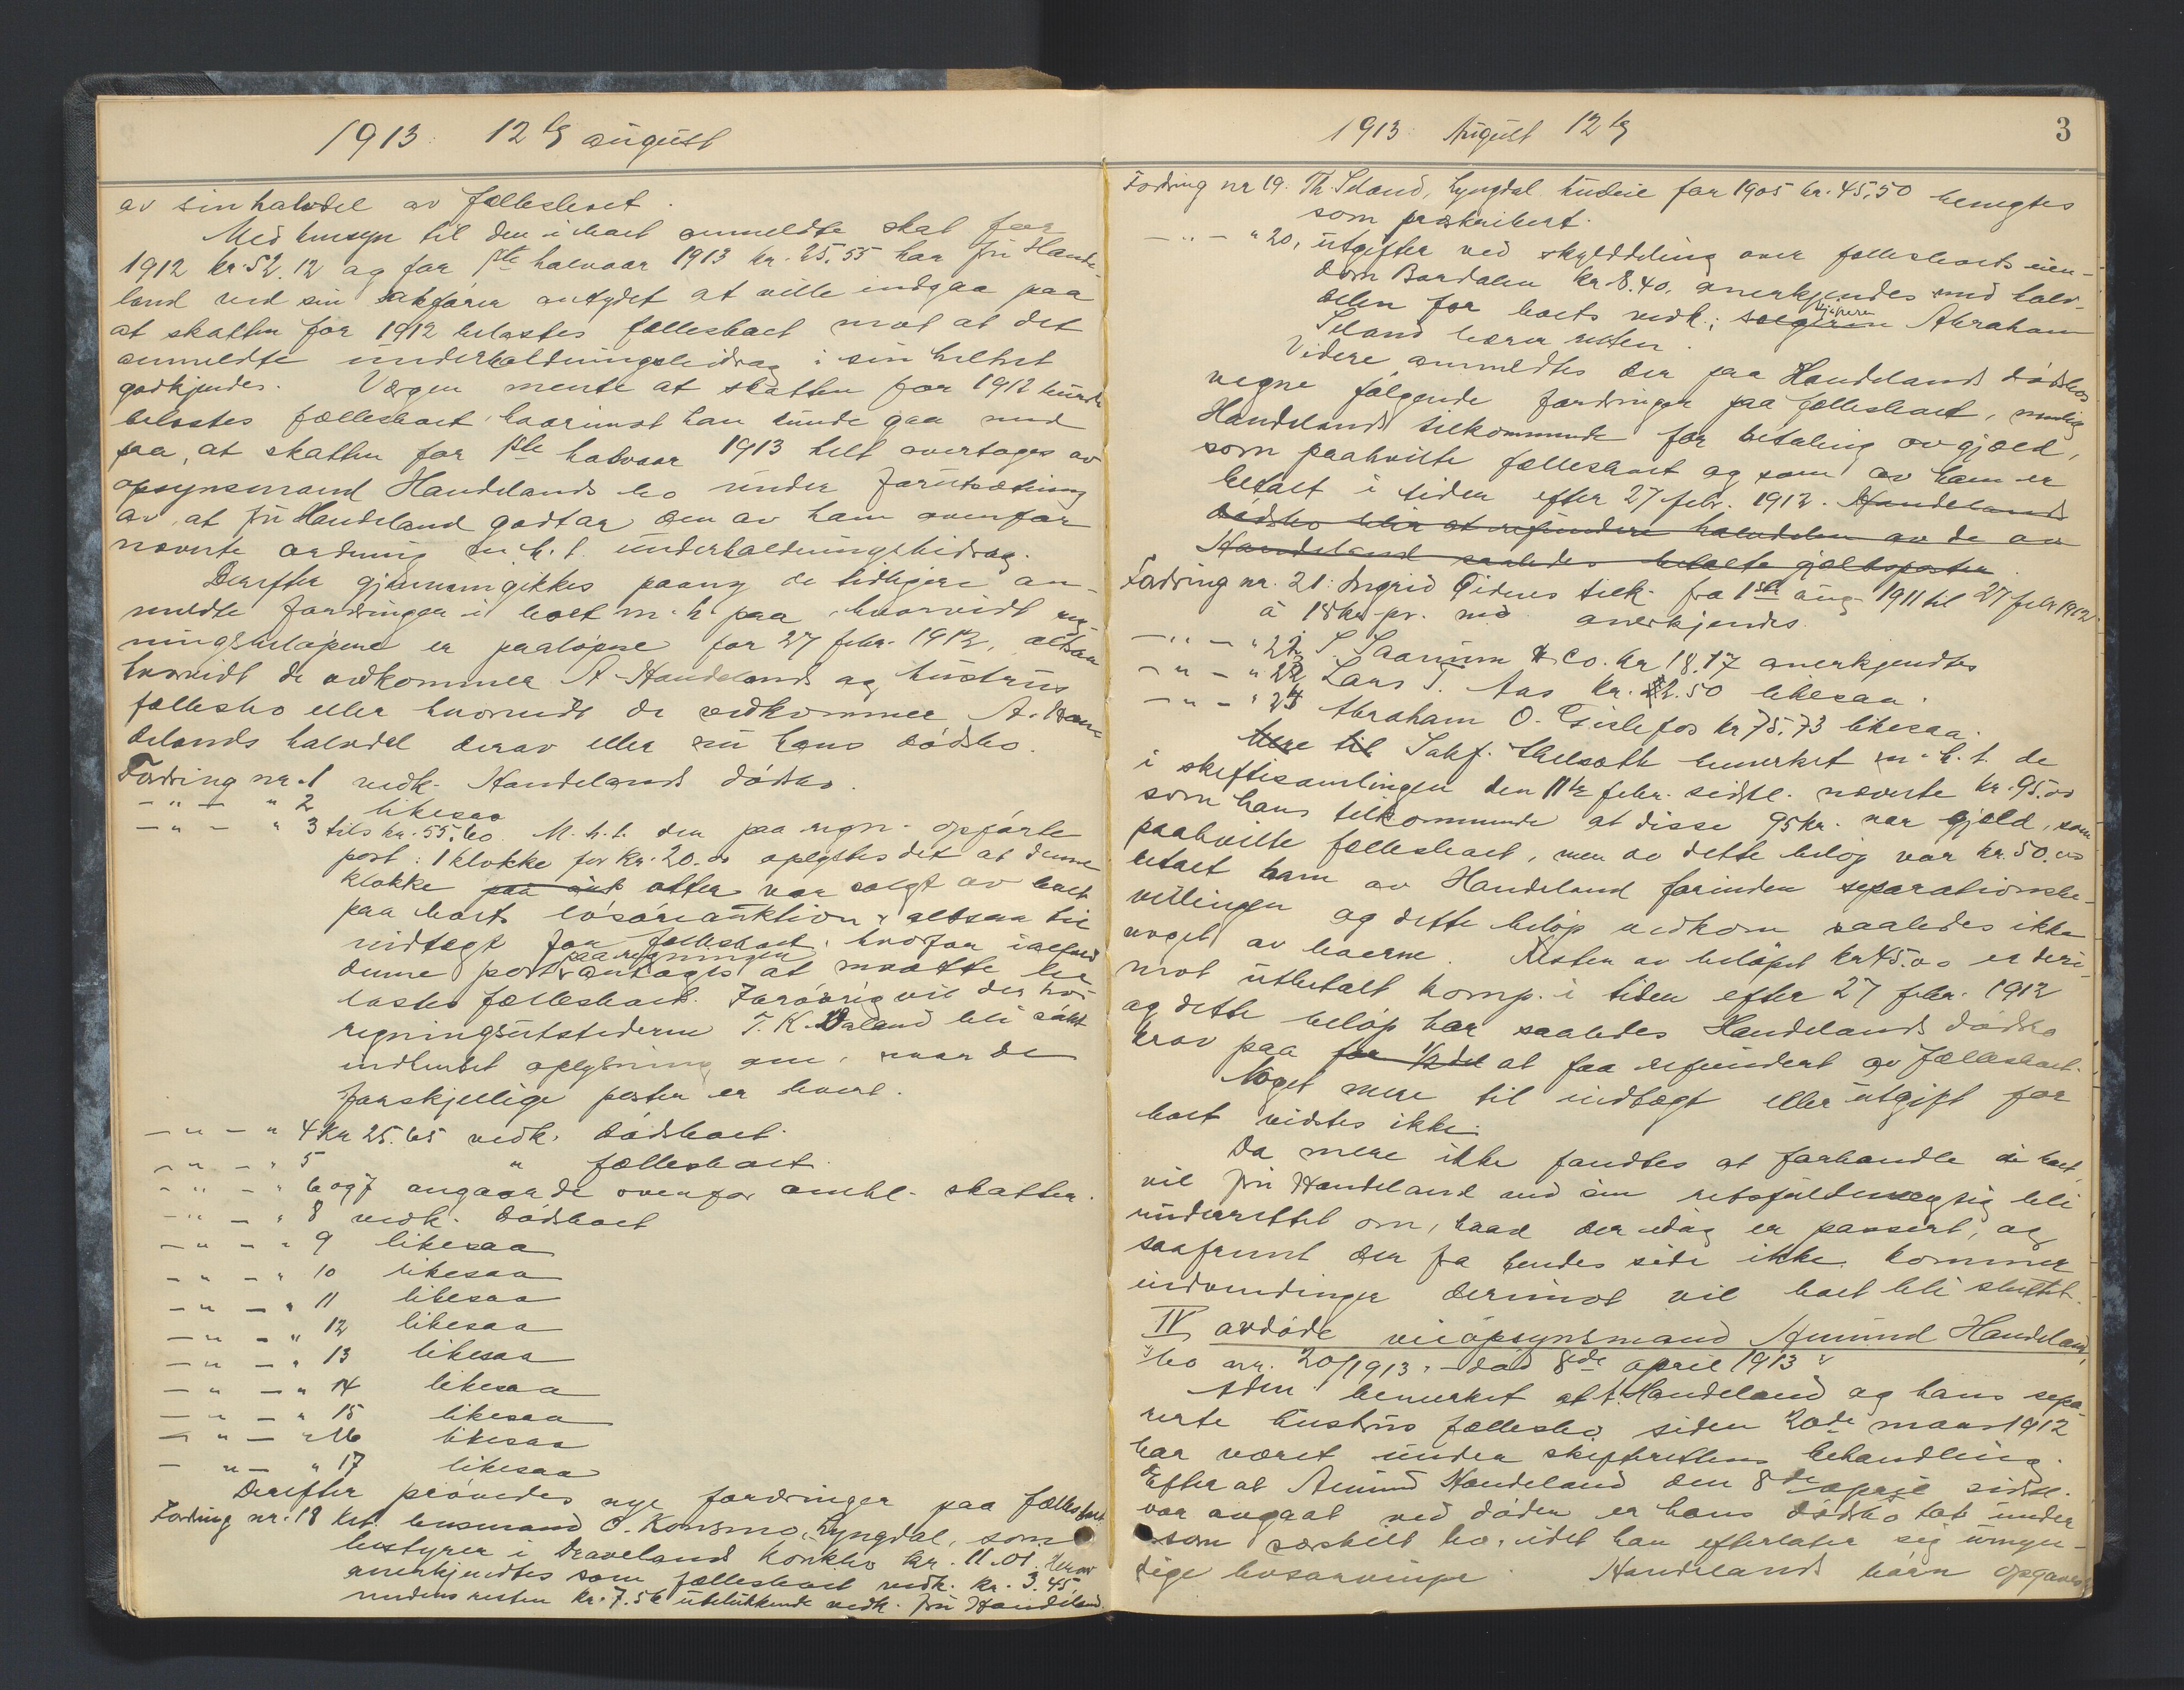 1913. 12te august
av sin halvdel av fællesboet.
Med hensyn til den i boet anmeldte skat for
1912 kr. 52.12 og for 1ste halvaar 1913 kr. 25.55 har fru Hande-
land ved sin sakfører antydet at ville indgaa paa
at skatten for 1912 belastes fællesboet mot at det
anmeldte underholdningsbidrag i sin helhet
godkjendes. Vergen mente at skatten for 1912 burde
belastes fællesboet, hvorimot han kunde gaa med
paa, at skatten for 1ste halvaar 1913 helt overtages av
opsynsmand Handelands bo under forutsætning
av, at fru Handeland godtar den av ham ovenfor
nævnte ordning m. h. t. underholdningsbidrag.
Derefter gjennemgikkes paany de tidligere an-
meldte fordringer i boet m. h. paa, hvorvidt reg-
ningsbeløpene er paaløpne før 27 febr. 1912, altsaa
hvorvidt de vedkommer A. Handelands og hustrus
fællesbo eller hvorvidt de vedkommer A. Han-
delands halvdel derav eller nu hans dødsbo.
Fordring nr. 1 vedk. Handelands dødsbo.
— " — " 2 likesaa
— " — " 3 tils kr. 55.60. M. h. t. den paa regn. opførte
post: 1 klokke for kr. 20.00 oplystes det at denne
klokke paa auk atter var solgt av boet
paa boets løsøreauktion, altsaa til
indtægt for fællesboet, hvorfor ialfald
denne post paa regningen antages at maatte be-
lastes fællesboet. Forøvrig vil der hos
regningsutstederen T. K. Daland bli søkt
indhentet oplysning om, naar de
forskjellige poster er hvert.
— " — " 4 kr 25.65 vedk. dødsboet.
— " — " 5 " fællesboet.
— " — " 6 og 7 angaar de ovenfor omhl. skatter.
— " — " 8 vedk. dødsboet
— " — " 9 likesaa
— " — " 10 likesaa
— " — " 11 likesaa
— " — " 12 likesaa
— " — " 13 likesaa
— " — " 14 likesaa
— " — " 15 likesaa
— " — " 16 likesaa
— " — " 17 likesaa
Derefter prøvedes nye fordringer paa fællesboet
Fordring nr. 18 kst. lensmand O. Konsmo, Lyngdal, som
bestyrer i Draveland konkbo kr. 11.01. Herav
anerkjendtes som fællesboet vedk. kr. 3.45,
medens resten kr. 7.56 utelukkende vedk. fru Handeland.
1913. August 12te
3
Fordring nr 19. Th. Seland, Lyngdal husleie for 1905 kr. 45.50 benegtes
som præskribert.
— " — " 20, utgifter ved skylddeling over fællesboets eien-
dom Bordalen kr. 8.40, anerkjendes med halv-
delen for boets vedk.; sælgeren kjøperen Abraham
Seland bærer resten.
Videre anmeldtes der paa Handelands dødsbos
vegne følgende fordringer paa fællesboet, nemlig
Handelands tilkommende for betaling av gjæld,
som paahvilte fællesboet og som av ham er
betalt i tiden efter 27 febr. 1912. Handelands
dødsbo blir at refundere halvdelen av de av
Handeland saaledes betalte gjældsposter.
Fordring nr. 21: Ingrid Eidsnes tilk. fra 1ste aug 1911 til 27 febr 1912
à 18 kr pr. md anerkjendes.
— " — " 22 S. Saanum & Co. kr 18.17 anerkjendtes
— " — " 23 Lars T. Aas kr. 2.50 likesaa.
— " — " 24 Abraham O. Gislefos kr 75.73 likesaa.
Mere til Sakf. bemerket m. h. t. de
i skiftesamlingen den 11te febr. sidstl. nævnte kr. 95.00
som hans tilkommende at disse 95 kr. var gjæld, som
paahvilte fællesboet, men av dette beløp var kr. 50.00
betalt ham av Handeland forinden separationsbe-
villingen og dette beløp vedkom saaledes ikke
noget av boerne. Resten av beløpet kr 45.00 er deri-
mot utbetalt komp. i tiden efter 27 febr. 1912
og dette beløp har saaledes Handelands dødsbo
krav paa for 1/2 del at faa refundert av fællesboet.
Noget mere til indtægt eller utgift for
boet vidstes ikke.
Da mere ikke fandtes at forhandle i boet,
vil fru Handeland ved sin retsfuldmægtig bli
underrettet om, hvad der idag er passert, og
saafremt der fra hendes side ikke kommer
indvendinger derimot vil boet bli sluttet.
IV avdøde viceopsynsmand Amund Handeland,
bo nr. 20/1913, – død 8de april 1913
Adm. bemerket at A. Handeland og hans sepa-
rerte hustrus fællesbo siden 20de mars 1912
har været under skifterettens behandling.
Efter at Amund Handeland den 8de april sidstl.
var avgaat ved døden er hans dødsbo tat under
som særskilt bo, idet han efterlater sig umyn-
dige livsarvinger. Handelands børn opgaves